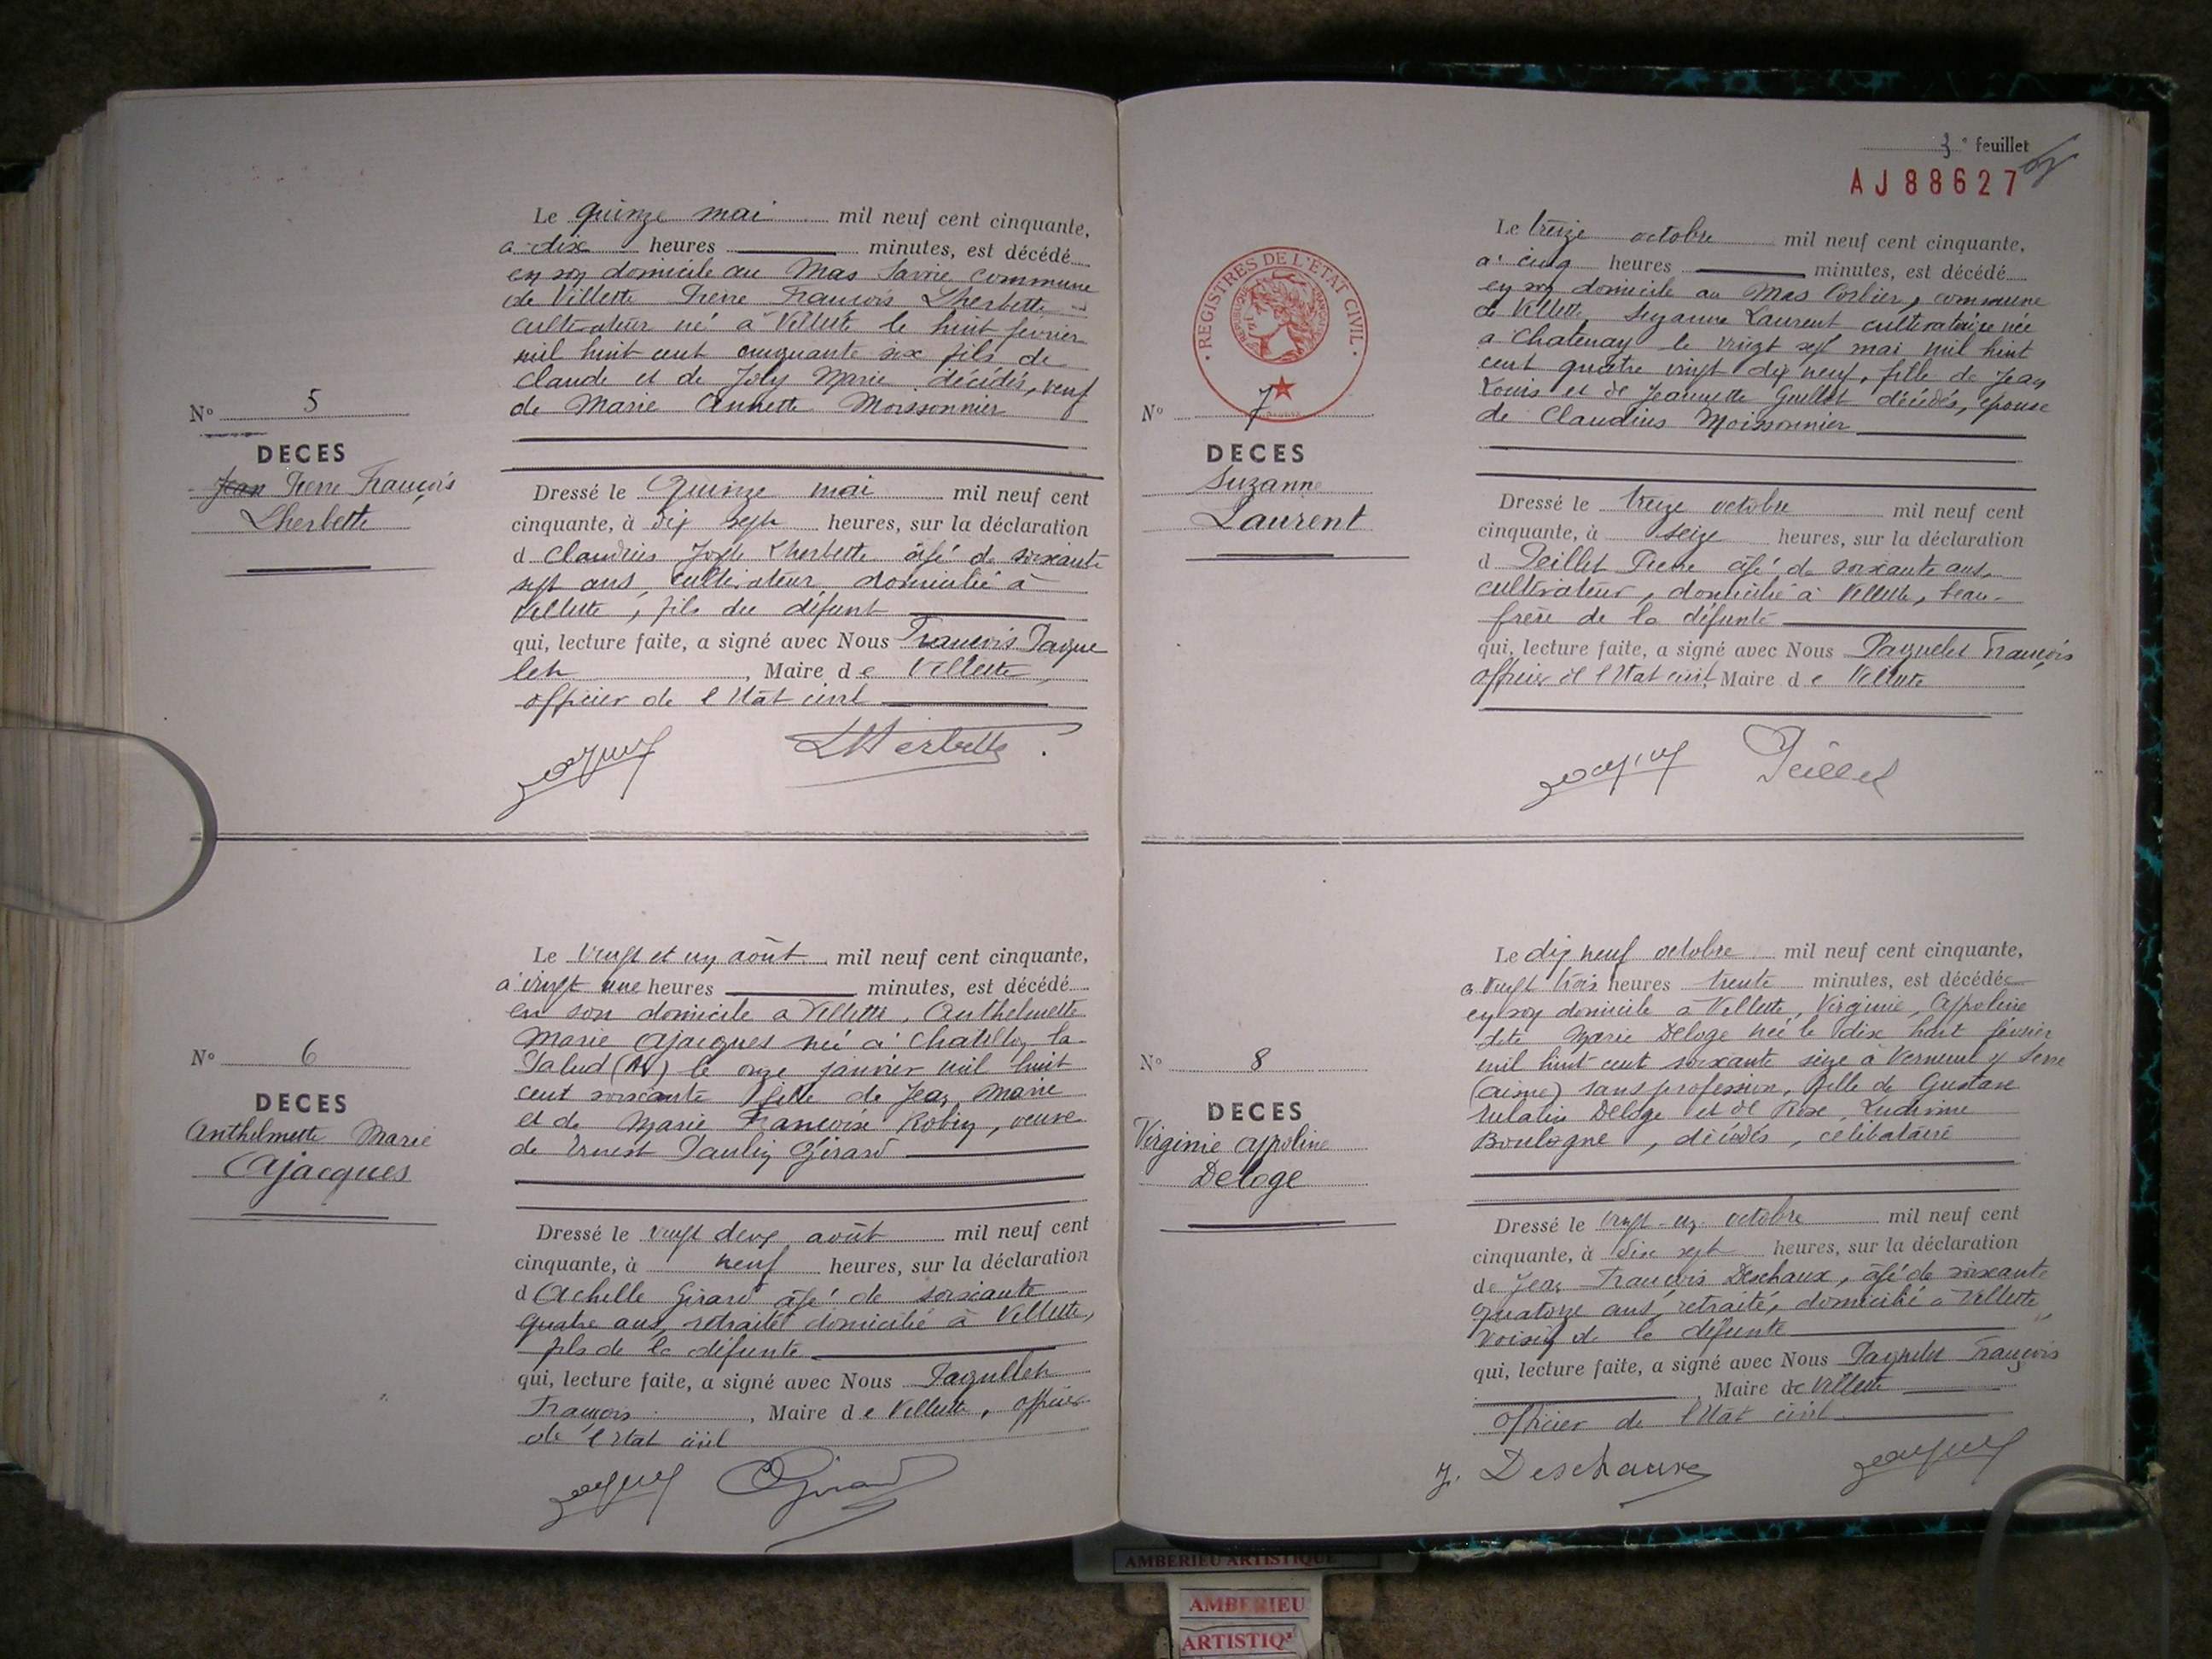 Le quinze mai mil neuf cent cinquante,
à dix heures minutes, est décédé
en son domicile au Mas Savrie commune
de Villette Pierre François Lherbette
cultivateur né à Villette le huit février
mil huit cent cinquante six fils de
Claude et de Joly Marie décédés, veuf
de Marie Annette Moissonnier
N° 5
DECES
Jean Pierre François
Lherbette
Dressé le Quinze mai mil neuf cent
cinquante, à dix sept heures, sur la déclaration
d Claudius Lherbette âgé de soixante
sept ans, cultivateur domicilié à
Villette, fils du défunt
qui, lecture faite, a signé avec Nous François Paque
let, Maire de Villette,
officier de l'Etat civil
LHerbette
Le vingt et un août mil neuf cent cinquante,
à vingt une heures minutes, est décédé
en son domicile à Villette, Anthelmette
Marie Ajacques née à Chatillon la
Palud (Ain) le onze janvier mil huit
cent soixante fille de Jean Marie
et de Marie Françoise Robin, veuve
de Ernest Paulin Girard
N° 6
DECES
Anthelmette Marie
Ajacques
Dressé le vingt deux août mil neuf cent
cinquante, à neuf heures, sur la déclaration
d Achille Girard âgé de soixante
quatre ans, retraité domicilié à Villette,
fils de la défunte
qui, lecture faite, a signé avec Nous Paquelet
François, Maire de Villette, officier
de l'Etat civil
Girard
3e feuillet
AJ88627
REGISTRES DE L'ETAT CIVIL
Le treize octobre mil neuf cent cinquante,
à cinq heures minutes, est décédé
en son domicile au Mas Corlier, commune
de Villette, Suzanne Laurent cultivatrice née
à Chatenay le vingt sept mai mil huit
cent quatre vingt dix neuf, fille de Jean
Louis et de Jeannette Guillot décédés, épouse
de Claudius Moissonnier
N° 7
DECES
Suzanne
Laurent
Dressé le treize octobre mil neuf cent
cinquante, à seize heures, sur la déclaration
d Peillet Pierre âgé de soixante ans,
cultivateur, domicilié à Villette, beau-
frère de la défunte
qui, lecture faite, a signé avec Nous Paquelet François
officier de l'Etat civil, Maire de Villette
Peillet
Le dix neuf octobre mil neuf cent cinquante,
à vingt trois heures trente minutes, est décédée
en son domicile à Villette, Virginie, Appoline
dite Marie Deloge née le dix huit février
mil huit cent soixante seize à Verneuil s/ Serre
(Aisne) sans profession, fille de Gustave
Eulalis Deloge et de Rose Ludivine
Boulogne, décédés, célibataire
N° 8
DECES
Virginie Appoline
Deloge
Dressé le vingt-un octobre mil neuf cent
cinquante, à dix sept heures, sur la déclaration
de Jean François Deschaux, âgé de soixante
quatorze ans, retraité, domicilié à Villette
voisin de la défunte
qui, lecture faite, a signé avec Nous Paquelet François
, Maire de Villette
officier de l'Etat civil
J. Deschaux
AMBERIEU ARTISTIQUE
AMBERIEU
ARTISTIQ